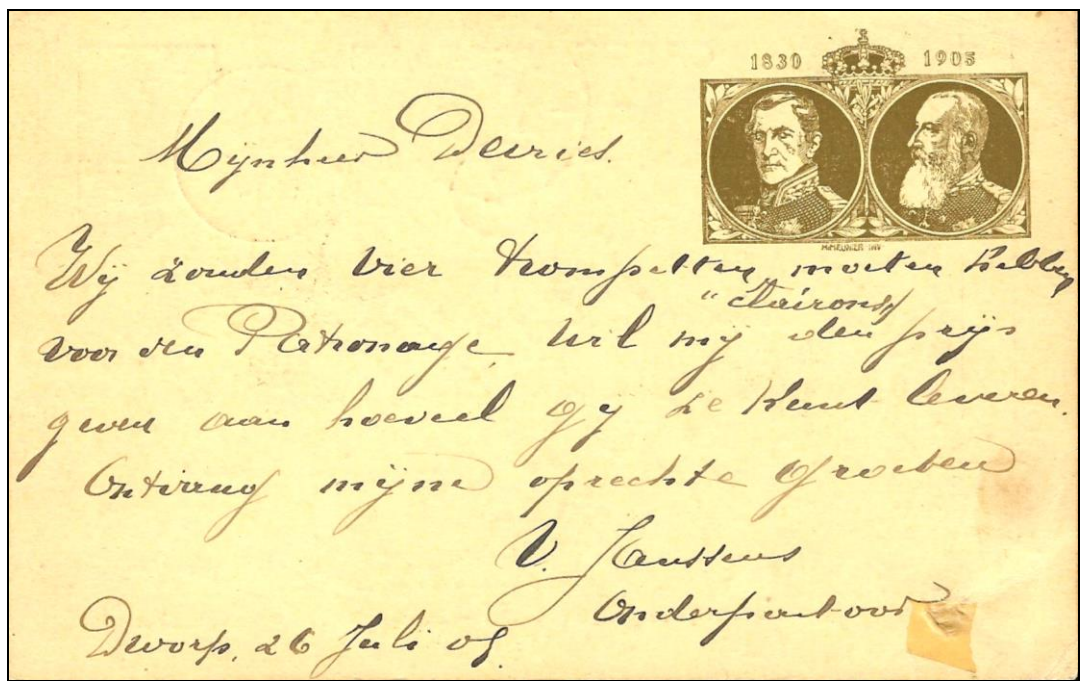 1830 1905
Mijnheer Devries.
Wij zouden vier trompetten moeten hebben
"clairons"
voor den Patronage, wil mij den prijs
geven aan hoeveel gij ze kunt leveren.
Ontvang mijne oprechte groeten
V. Janssens
Onderpastoor
Dworp, 26 Juli 05.